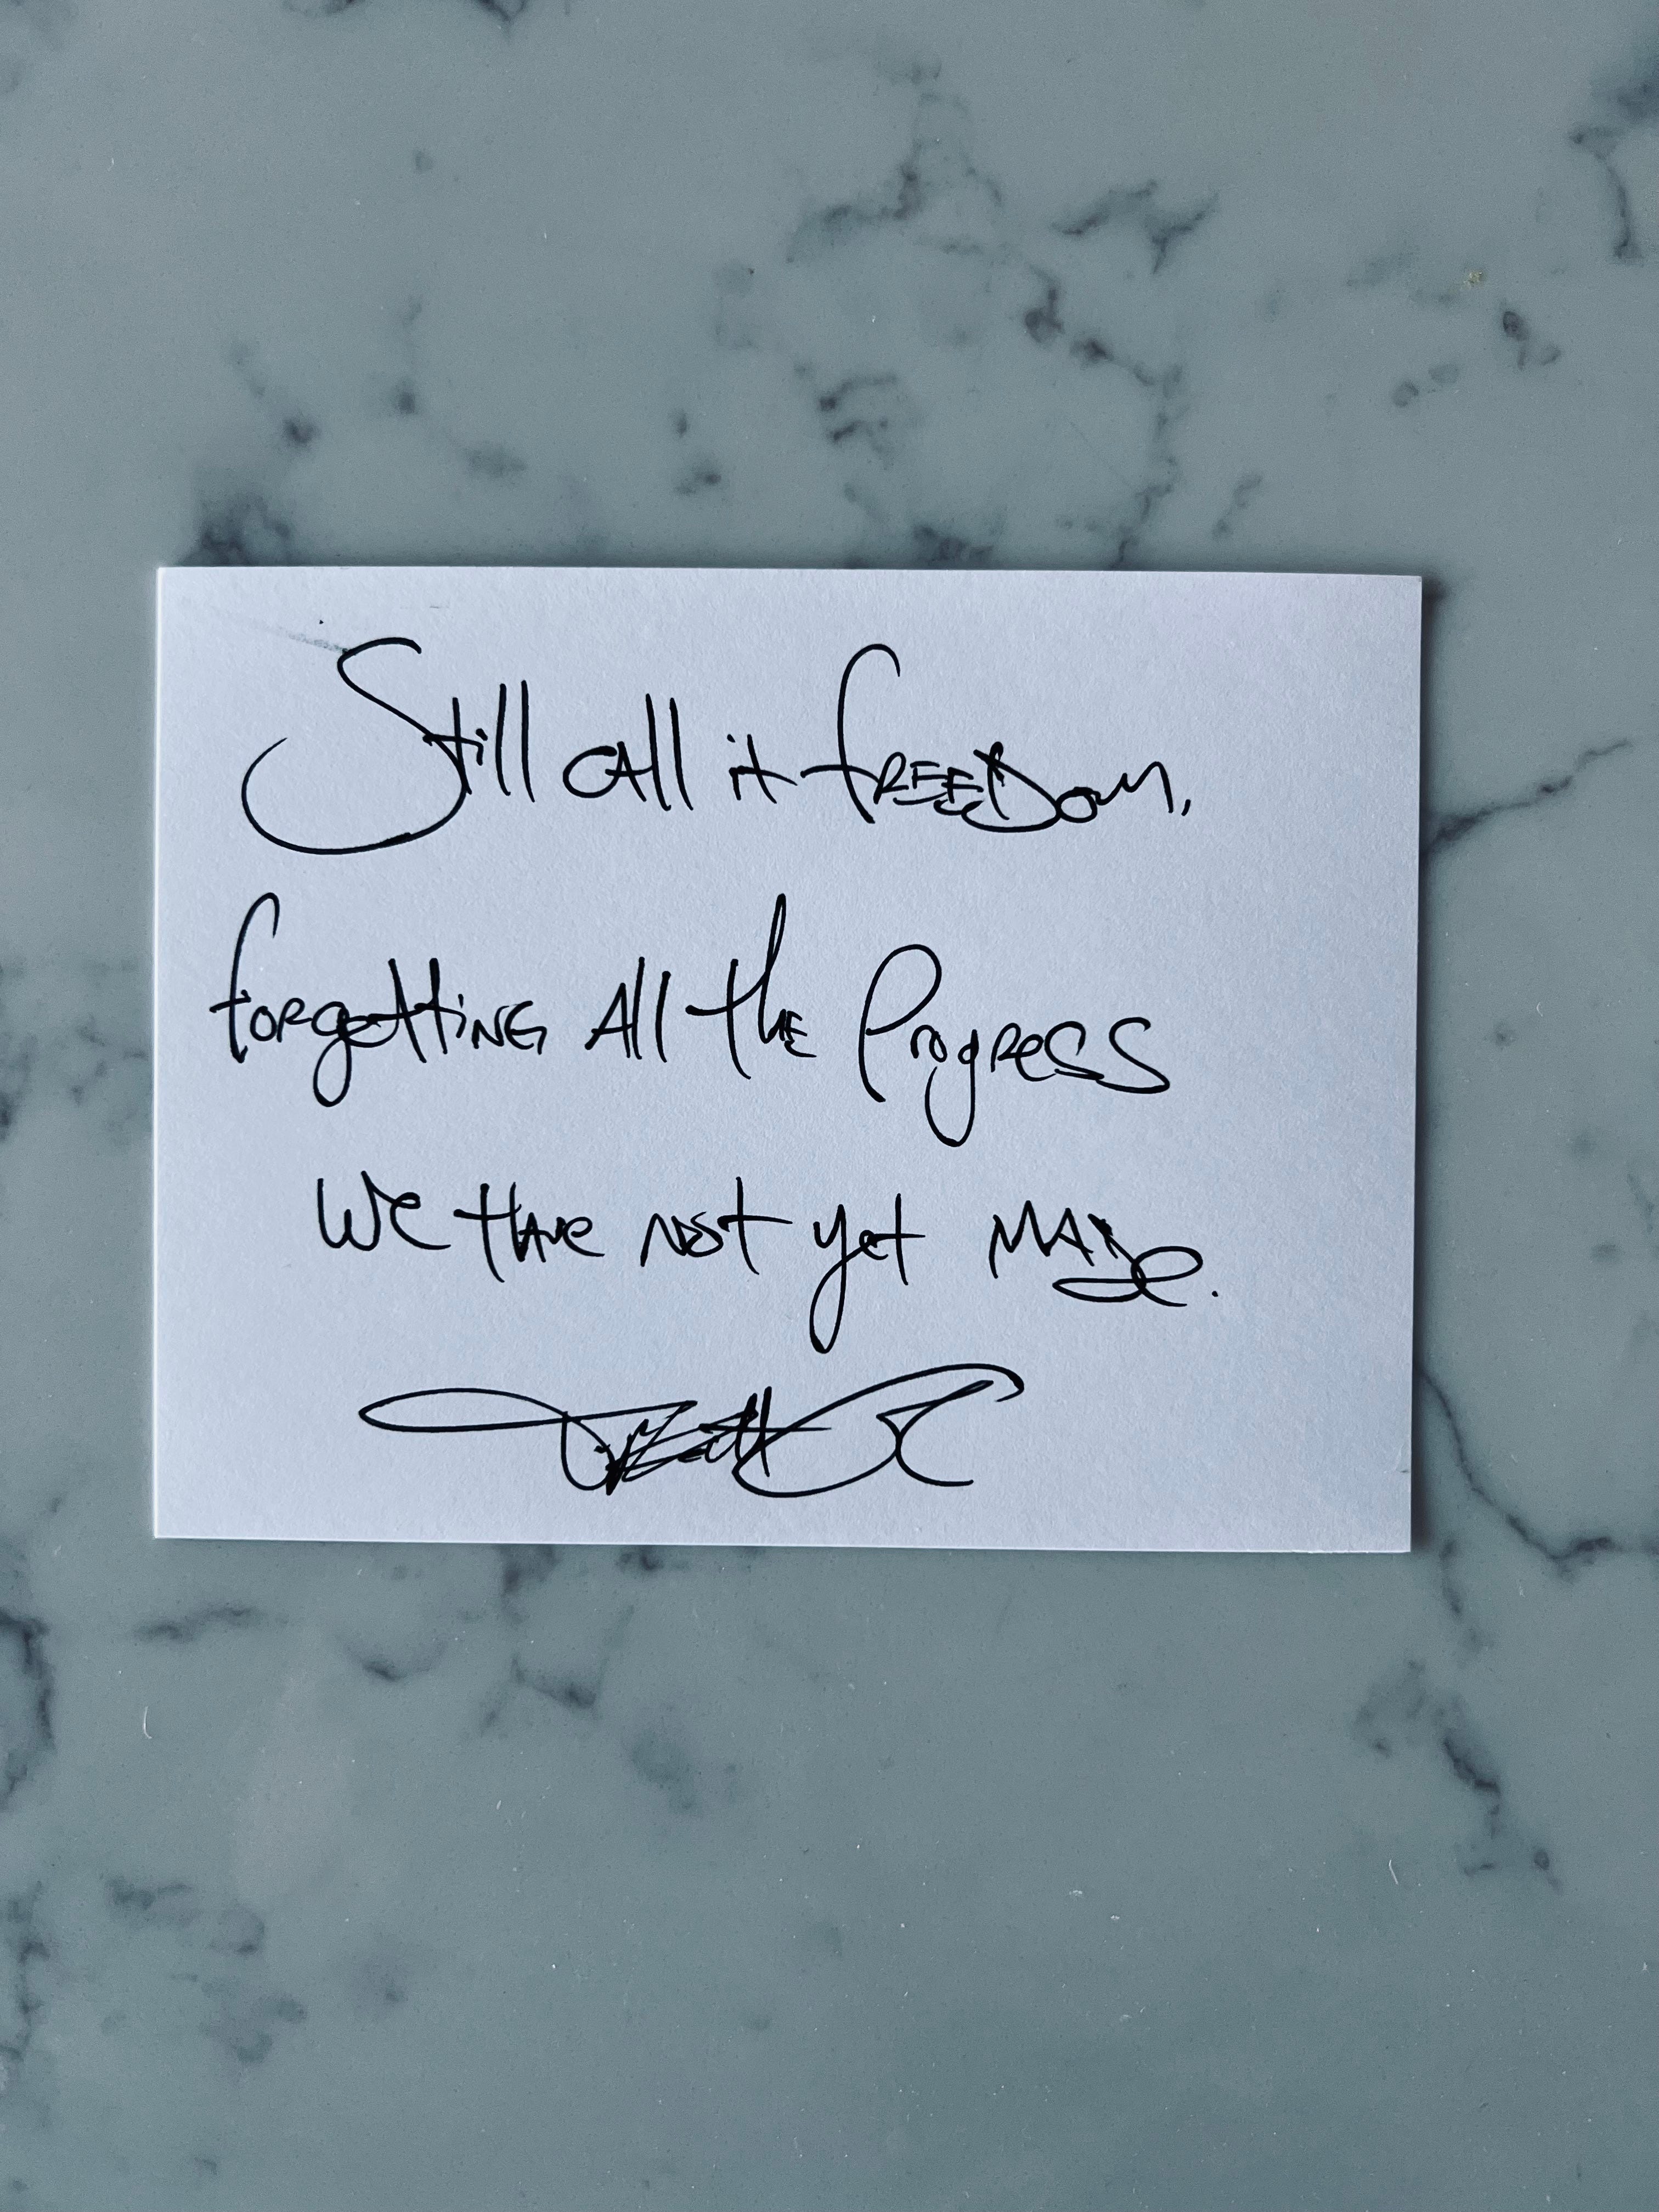 Still call it freedom,
forgetting all the Progress
We have not yet made.